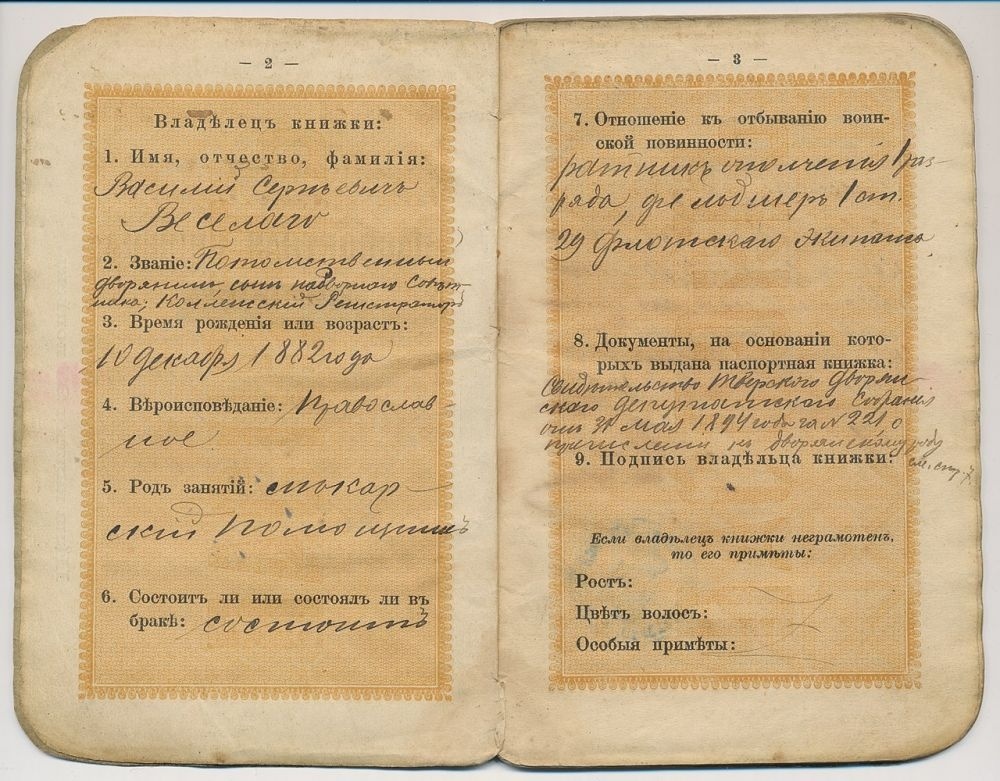 — 2 —
Владѣлецъ книжки:
1. Имя, отчество, фамилія:
Василій Сергѣевичъ
Веселаго
2. Званіе: Потомственный
дворянинъ, сынъ надворнаго Совѣт-
ника; Коллежскій Регистраторъ
3. Время рожденія или возрастъ:
10 декабря 1882 года
4. Вѣроисповѣданіе: Православ-
ное
5. Родъ занятій:
скій помощникъ
6. Состоитъ ли или состоялъ ли въ
бракѣ: состоитъ
— 3 —
7. Отношеніе къ отбыванію воин-
ской повинности:
ратникъ ополченія 1 раз-
ряда, фельдшеръ 1 ст.
29 флотскаго экипажа
8. Документы, на основаніи кото-
рыхъ выдана паспортная книжка:
Свидѣтельство Тверского Дворян-
скаго Депутатскаго Собранія
отъ 31 мая 1894 года за № 221 о
причисленіи къ дворянскому роду
см. стр. 7
9. Подпись владѣльца книжки:
Если владѣлецъ книжки неграмотенъ,
то его примѣты:
Ростъ:
Цвѣтъ волосъ:
Особыя примѣты: